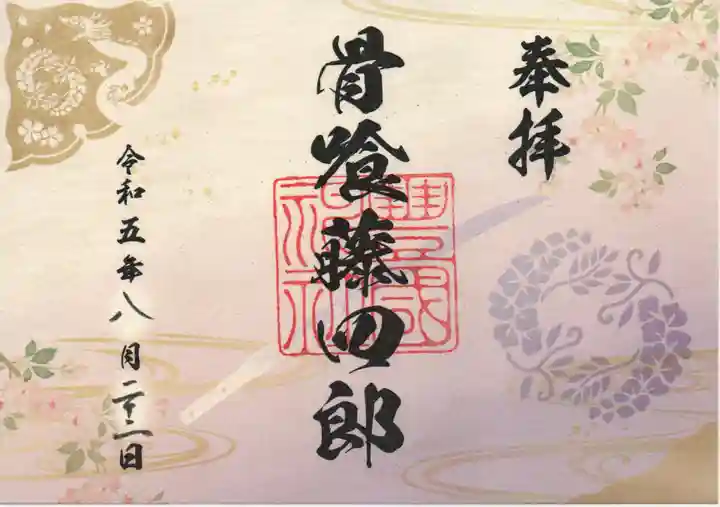 奉拝
骨喰藤四郎
豊國神社
令和五年八月二十二日